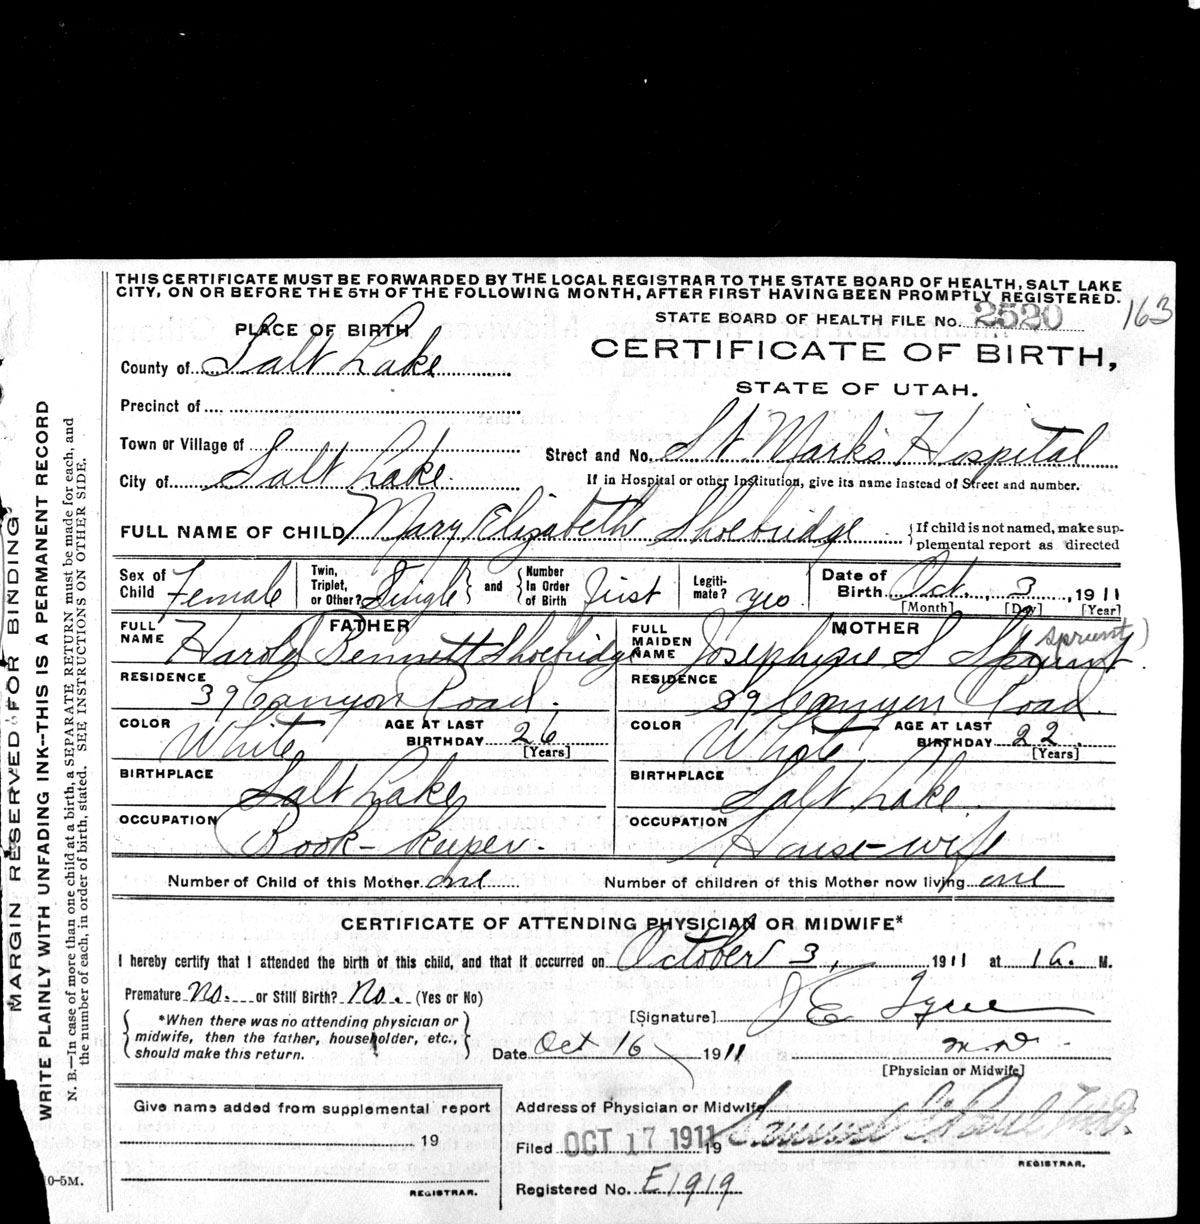 THIS CERTIFICATE MUST BE FORWARDED BY THE LOCAL REGISTRAR TO THE STATE BOARD OF HEALTH, SALT LAKE
CITY, ON OR BEFORE THE 5TH OF THE FOLLOWING MONTH, AFTER FIRST HAVING BEEN PROMPTLY REGISTERED.
STATE BOARD OF HEALTH FILE No. 2520 163
PLACE OF BIRTH
CERTIFICATE OF BIRTH,
STATE OF UTAH.
County of Salt Lake
Precinct of
Town or Village of
Street and No. St Mark's Hospital
City of Salt Lake.
If in Hospital or other Institution, give its name instead of Street and number.
FULL NAME OF CHILD Mary Elizabeth Shoebridge
{If child is not named, make sup-
plemental report as directed
Sex of Child Female
Twin, Triplet, or Other? Single } and { Number In Order of Birth first
Legiti-mate? yes
Date of Birth Oct. 3 1911
[Month] [Day] [Year]
FATHER
FULL NAME Harold Bennett Shoebridge
MOTHER
FULL MAIDEN NAME Josephine S Sprunt (Sprunt)
RESIDENCE 39 Canyon Road.
RESIDENCE 39 Canyon Road.
COLOR White AGE AT LAST BIRTHDAY 26 [Years]
COLOR White AGE AT LAST BIRTHDAY 22 [Years]
BIRTHPLACE Salt Lake
BIRTHPLACE Salt Lake.
OCCUPATION Book-keeper.
OCCUPATION House-wife
Number of Child of this Mother one
Number of children of this Mother now living one
CERTIFICATE OF ATTENDING PHYSICIAN OR MIDWIFE*
I hereby certify that I attended the birth of this child, and that it occurred on October 3, 1911 at 1 a. M.
Premature No. or Still Birth? No. (Yes or No)
*When there was no attending physician or
midwife, then the father, householder, etc.,
should make this return.
[Signature] J E Tyree
Date Oct 16 1911 M.D.
[Physician or Midwife]
Give name added from supplemental report
19
REGISTRAR.
Address of Physician or Midwife
Filed OCT 17 1911 19
REGISTRAR.
Registered No. E1919
MARGIN RESERVED FOR BINDING
WRITE PLAINLY WITH UNFADING INK--THIS IS A PERMANENT RECORD
N. B.—In case of more than one child at a birth, a SEPARATE RETURN must be made for each, and
the number of each, in order of birth, stated. SEE INSTRUCTIONS ON OTHER SIDE.
0-5M.